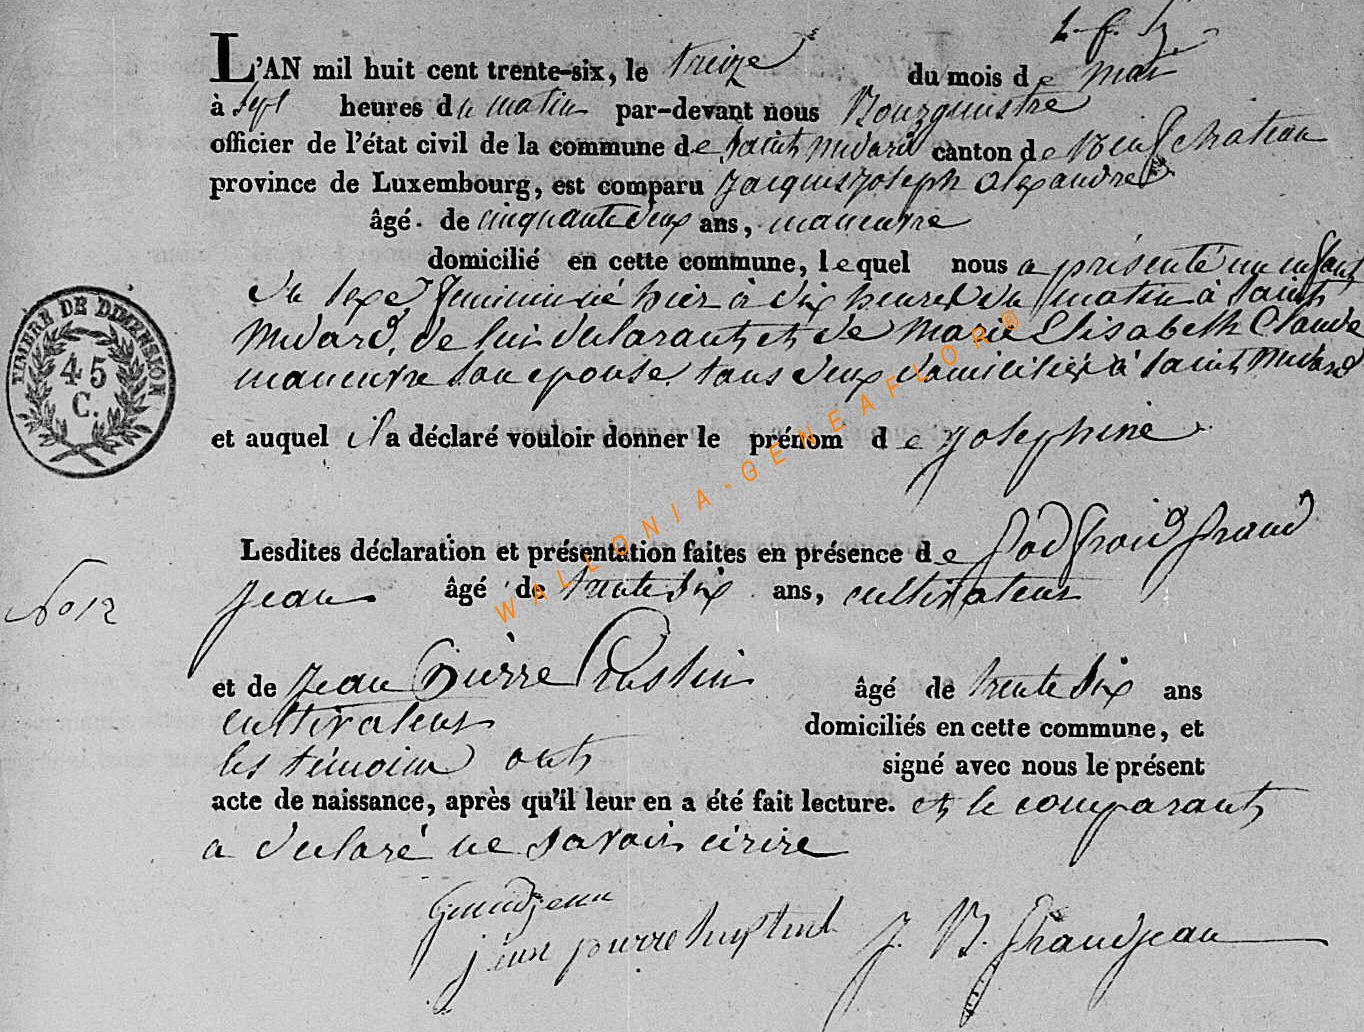 L'AN mil huit cent trente-six, le treize du mois de mai
à sept heures du matin par-devant nous Bourguestre
officier de l'état civil de la commune de Saint Médard canton de Neufchateau
province de Luxembourg, est comparu Jacques Joseph Alexandre
âgé de cinquante deux ans, maneuvre
domicilié en cette commune, lequel nous a présenté un enfant
du sexe feminin né hier à dix heures du matin à Saint
Médard, de lui déclarant et de Marie Elisabeth Claude
maneuvre son epouse tous deux domiciliés à Saint Médard
TIMBRE DE DIMENSION
45
C.
et auquel il a déclaré vouloir donner le prénom de Josephine
WALLONIA-GENEAFLOR®
Lesdites déclaration et présentation faites en présence de Godfroid Grand
No 12
Jean âgé de trente six ans, cultivateur
et de Jean Pierre âgé de trente six ans
cultivateur domiciliés en cette commune, et
les témoins ont signé avec nous le présent
acte de naissance, après qu'il leur en a été fait lecture. et le comparant
a déclaré ne savoir écrire
Grandjean
jean pierre
J. B. Grandjean